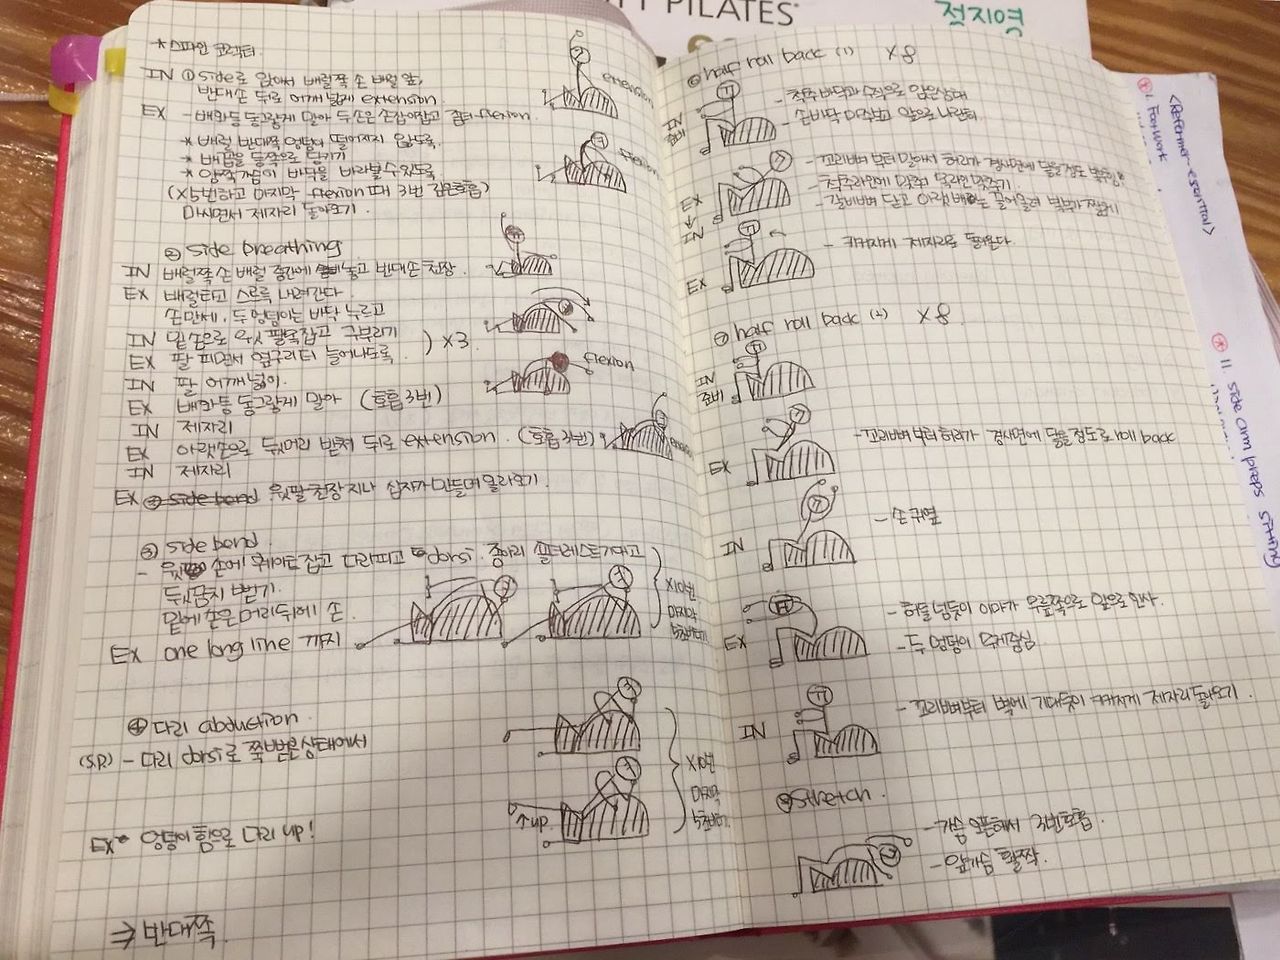 PILATES
정지영
* 스파인 코렉터
IN ① side로 앉아서 배럴쪽 손 배럴 앞,
반대손 뒤로 어깨넓게 extension
EX - 배와등 동그랗게 말아 두손은 손잡이잡고 flexion.
* 배럴 반대쪽 엉덩이 떨어지지 않도록.
* 배꼽을 등쪽으로 당기기
* 양쪽 가슴이 바닥을 바라볼수있도록
(x5번하고 마지막 flexion때 3번 깊은호흡)
마시면서 제자리 돌아오기.
extension
flexion
② side breathing
IN 배럴쪽 손 배럴 중간에 놓고 반대손 천장.
EX 배럴타고 스르륵 내려간다.
손만세, 두 엉덩이는 바닥 누르고
IN 밑손으로 윗 팔뚝잡고 구부리기
EX 팔 피면서 옆구리 더 늘어나도록.
) x3
IN 팔 어깨넓이.
EX 배와등 동그랗게 말아 (호흡3번)
flexion
IN 제자리
EX 아랫손으로 뒷머리 받쳐 뒤로 extension. (호흡3번)
IN 제자리
EX 윗팔 천장 지나 십자가 만들며 올라오기
③ side bend.
- 윗손에 웨이트 잡고 다리피고 dorsi. 종아리 숄더레스트 기대고
뒷꿈치 뻗기.
밑에 손은 머리뒤에 손
EX one long line 까지
x10번
마지막
5초버티기
④ 다리 abduction.
(S.P.) - 다리 dorsi로 쭉 뻗은 상태에서
EX - 엉덩이 힘으로 다리 up!
↑up
x10번
마지막
5초버티기
⇒ 반대쪽
half roll back (1) x8
IN
준비
- 척추 바닥과 수직으로 앉은상태
- 손바닥 마주보고 앞으로 나란히
EX
↓
IN
- 꼬리뼈부터 말아서 허리가 경사면에 닿을정도
- 갈비뼈 닫고 아랫배는 끌어올려
EX
- 키커지게 제자리로 돌아온다
half roll back (2) x8.
IN
준비
EX
- 꼬리뼈부터 허리가 경사면에 닿을정도로 roll back
IN
- 손 귀옆
EX
- 허들 넘듯이 이마가 무릎쪽으로 앞으로 인사.
- 두 엉덩이 무게중심
IN
- 꼬리뼈부터 벽에 기대듯이 키커지게 제자리 돌아오기.
stretch.
- 가슴 오픈해서 3번호흡.
- 앞가슴 활짝.
<Reformer-essential>
1. Footwork
11. side arm preps sitting